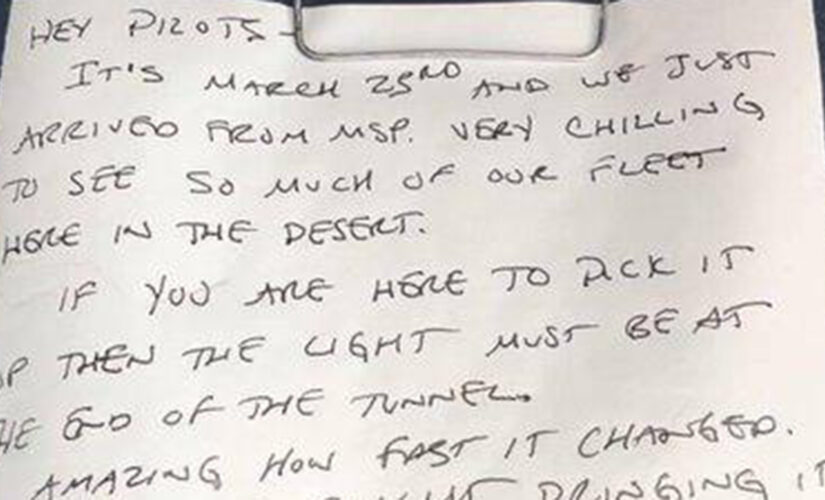 HEY PILOTS-
IT'S MARCH 23RD AND WE JUST
ARRIVED FROM MSP. VERY CHILLING
TO SEE SO MUCH OF OUR FLEET
HERE IN THE DESERT.
IF YOU ARE HERE TO PICK IT
UP THEN THE LIGHT MUST BE AT
THE END OF THE TUNNEL.
AMAZING HOW FAST IT CHANGED.
BRINGING IT